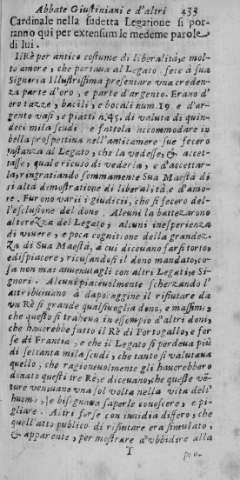 Abbate Giustiniani e d'altri 433
Cardinale nella sudetta Legatione si por-
ranno qui per extensum le medeme parole
di lui.
Il Rè per antico costume di liberalità, e mol-
to amore, che portaua al Legato fece à sua
Signoria Illustrissima presentare vna creden-
za parte d'oro, e parte d'argento. Erano d'
oro tazze, bacili, e bocali num. 19 e d'ar-
gento vasi, e piatti n. 45. di valuta di quin-
deci mila scudi e fattola accommodare in
bella prospettiua nell'anticamere sue fecero
instanza al Legato, che la vedesse, & accet-
tasse, quale ricusò di vederla, e d'accettar-
la, ringratiando sommamente Sua Maestà di
sì alta dimostratione di liberalità, e d'amo-
re. Furono varij i giudicij, che si fecero del-
l'esclusione del dono. Alcuni la battezzarono
alterezza del Legato, alcuni inesperienza
di viuere, e poca cognitione della grandez-
za di Sua Maestà, à cui diceuano farsi torto,
e dispiacere, ricusandosi il dono mandato, co-
sa non mai auuenuta gli con altri Legati, e Si-
gnori. Alcuni piaceuolmente scherzando l'
attribuiuano à dapoaggine il rifiutare da
vn Rè sì grande qualsiuoglia dono, e massime
che questo si traheua in essempio d'altri doni,
che hauerebbe fatto il Rè di Portogallo, e for-
se di Francia, e che il Legato si perdeua più
di sessanta mila scudi, che tanto si valutaua
quello, che ragioneuolmente gli hauerebbero
donato questi tre Rè, e diceuano che queste vē-
ture veniuano vna sol volta nella vita dell'
huomo, e bisognaua saperle conoscere, e pi-
gliare. Altri forse con inuidia dissero, che
quell'atto publico di rifiutare era simulato,
& apparente, per mostrare d'vbbidire alla
T